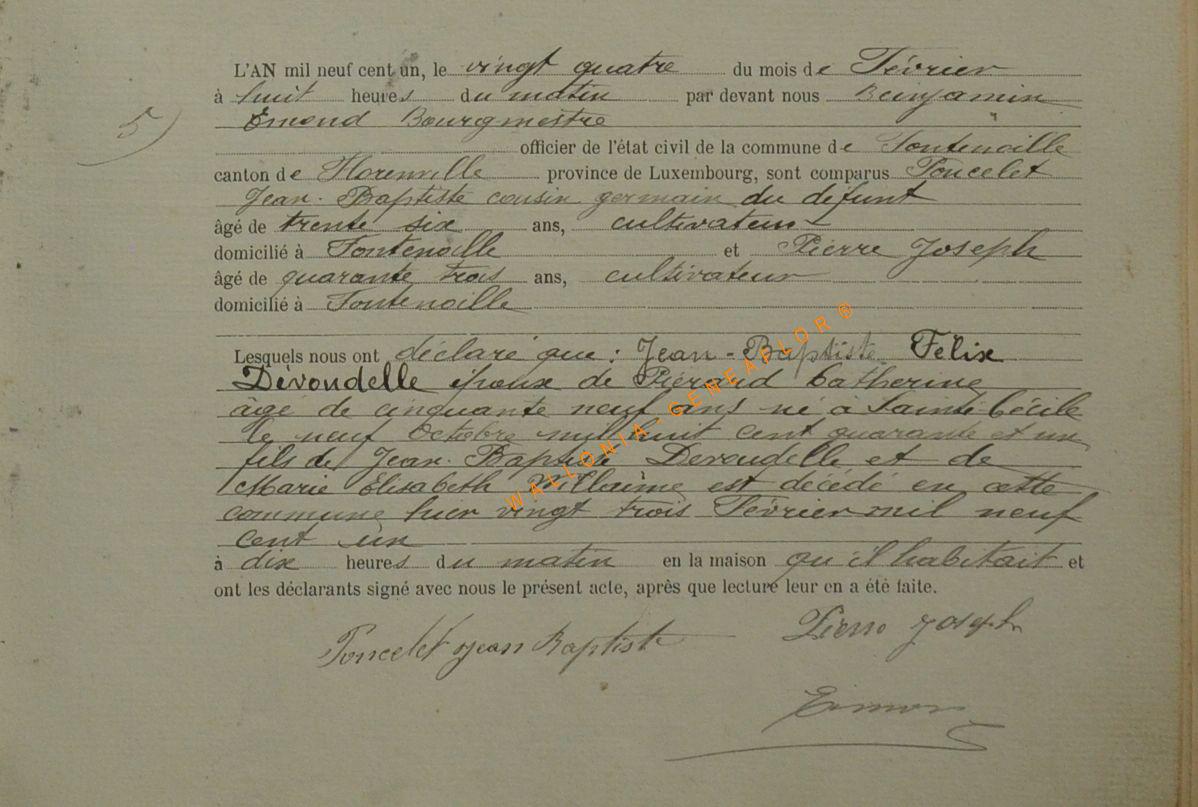 L'AN mil neuf cent un, le vingt quatre du mois de Février
à huit heures du matin par devant nous Benjamin
5)
Emond Bourgmestre
officier de l'état civil de la commune de Fontenoille
canton de Florenville province de Luxembourg, sont comparus Poncelet
Jean-Baptiste cousin germain du défunt
âgé de trente six ans, cultivateur
domicilié à Fontenoille et Pierre Joseph
âgé de quarante trois ans, cultivateur
domicilié à Fontenoille
Lesquels nous ont déclaré que : Jean-Baptiste Félix
Dévoudelle époux de Piérard Catherine
âgé de cinquante neuf ans né à Sainte Cécile
le neuf Octobre mil huit cent quarante et un
fils de Jean-Baptiste Devoudelle et de
Marie Elisabeth Willaime est décédé en cette
commune hier vingt trois Février mil neuf
cent un
à dix heures du matin en la maison qu'il habitait et
ont les déclarants signé avec nous le présent acte, après que lecture leur en a été faite.
Poncelet Jean Baptiste Pierre Joseph
Emond
WALLONIA-GENEAFLOR ®